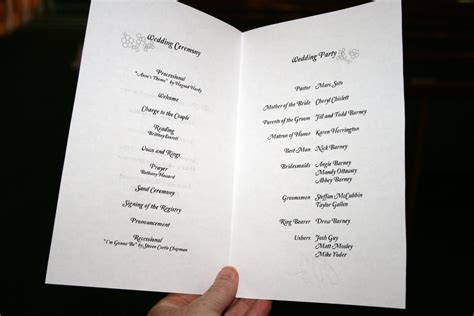 Wedding Ceremony
Processional
"Anne's Theme" by Hagood Hardy
Welcome
Charge to the Couple
Reading
Brittney Everett
Vows and Rings
Prayer
Bethany Howard
Sand Ceremony
Signing of the Registry
Pronouncement
Recessional
"I'm Gonna Be" by Steven Curtis Chapman
Wedding Party
Pastor Marc Seto
Mother of the Bride Cheryl Chislett
Parents of the Groom Jill and Todd Barney
Matron of Honor Karen Herrington
Best Man Nick Barney
Bridesmaids Angie Barney
Mandy Ottaway
Abbey Barney
Groomsmen Steffan McCubbin
Taylor Gallen
Ring Bearer Drew Barney
Ushers Josh Guy
Matt Mosley
Mike Yoder